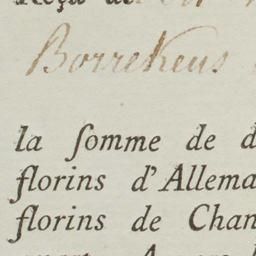 Reçu de
Borrekens
la ſomme de d
florins d'Allema
florins de Chan